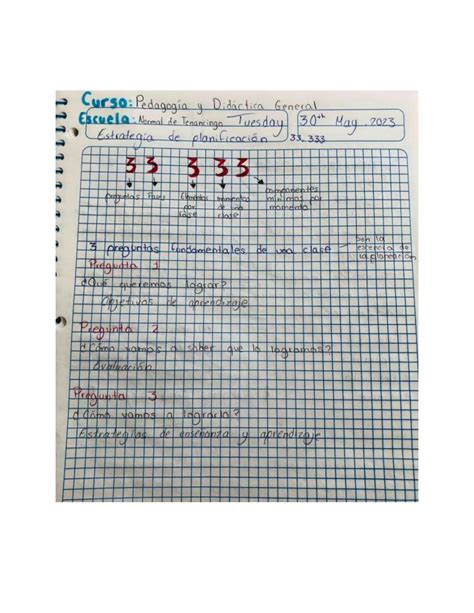 Curso: Pedagogía y Didáctica General
Escuela: Normal de Tenancingo Tuesday 30th May, 2023
Estrategia de planificación 33.333
3 3 3 3 3
preguntas Fases Elementos por clase momentos de una clase componentes mínimos por momento
3 preguntas fundamentales de una clase son la esencia de la planeación
Pregunta 1
¿Qué queremos lograr?
Objetivos de aprendizaje
Pregunta 2
¿Cómo vamos a saber que lo logramos?
Evaluación
Pregunta 3
¿Cómo vamos a lograrlo?
Estrategias de enseñanza y aprendizaje